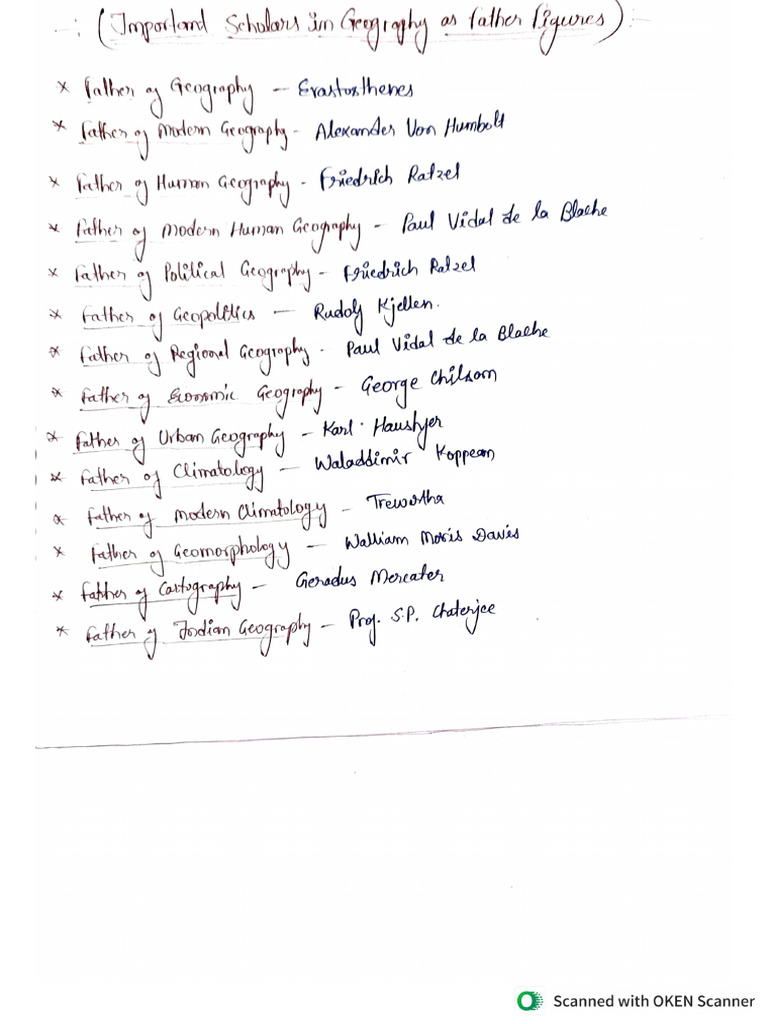 -: (Important Scholars in Geography as father figures) :-
* Father of Geography - Erastosthenes
* Father of Modern Geography - Alexander Von Humbolt
* Father of Human Geography - Friedrich Ratzel
* Father of Modern Human Geography - Paul Vidal de la Blache
* Father of Political Geography - Friedrich Ratzel
* Father of Geopolitics - Rudolf Kjellen.
* Father of Regional Geography - Paul Vidal de la Blache
* Father of Economic Geography - George Chilsom
* Father of Urban Geography - Karl Haushfer
* Father of Climatology - Waladdimir Koppean
* Father of Modern Climatology - Trewartha
* Father of Geomorphology - Walliam Moris Davis
* Father of Cartography - Geradus Mercater
* Father of Indian Geography - Prof. S.P. Chaterjee
Scanned with OKEN Scanner